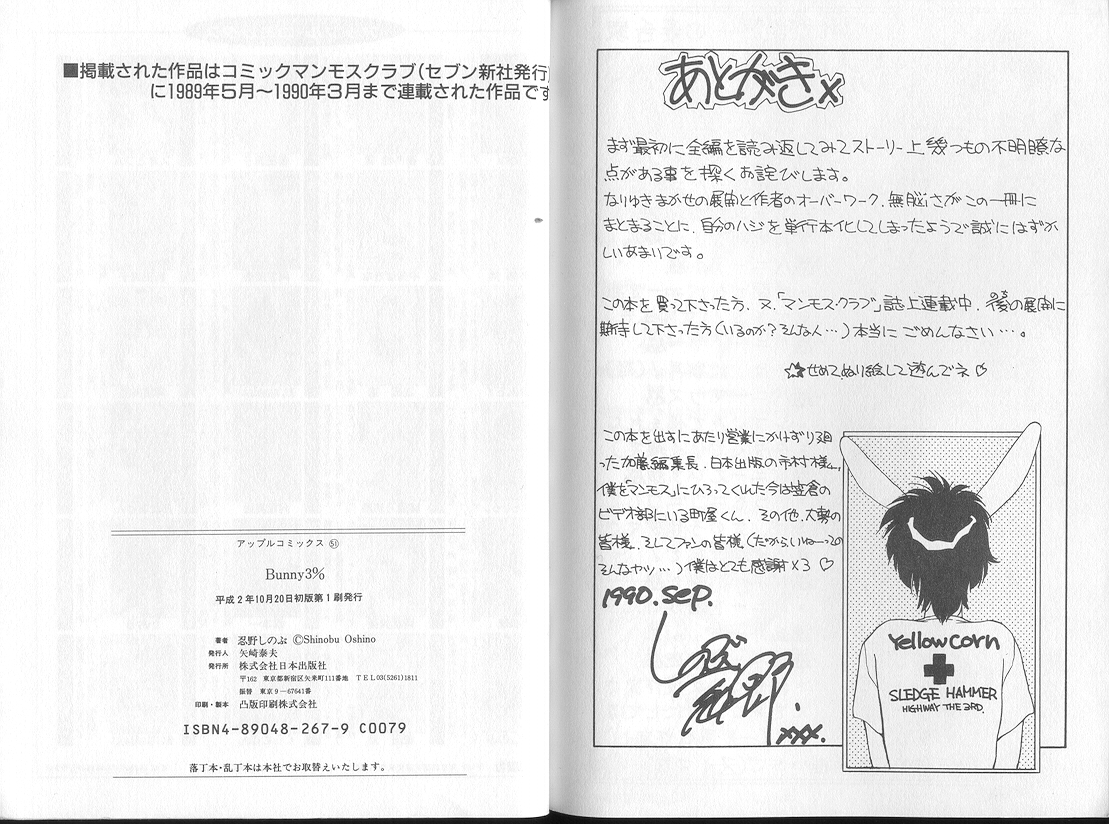 ■掲載された作品はコミックマンモスクラブ(セブン新社発行)
に1989年5月～1990年3月まで連載された作品です
アップルコミックス 51
Bunny3%
平成2年10月20日初版第1刷発行
著者 忍野しのぶ ©Shinobu Oshino
発行人 矢崎泰夫
発行所 株式会社日本出版社
〒162 東京都新宿区矢来町111番地 TEL03(5261)1811
振替 東京9－67641番
印刷・製本 凸版印刷株式会社
ISBN4-89048-267-9 C0079
落丁本・乱丁本は本社でお取替えいたします。
あとがき×
まず最初に全編を読み返してみてストーリー上幾つもの不明瞭な
点がある事を深くお詫びします。
なりゆきまかせの展開と作者のオーバーワーク、無脳さがこの一冊に
まとまることに、自分のハジを単行本化してしまったようで誠にはずか
しいあまりです。
この本を買って下さった方、又、「マンモスクラブ」誌上連載中、後の展開に
期待して下さった方(いるのか?そんな人…)本当にごめんなさい…。
☆せめてぬり絵して遊んでネ♡
この本を出すにあたり営業にかけずり廻
った加藤編集長、日本出版の市村様、
僕を「マンモス」にひろってくれた今は笠倉の
ビデオ部にいる町屋くん、その他、大勢の
皆様、そしてファンの皆様(だからいねーっての
そんなヤツ…)僕はとても感謝×3 ♡
1990.sep.
忍野
xxx.
Yellowcorn
SLEDGE HAMMER
HIGHWAY THE 3RD.